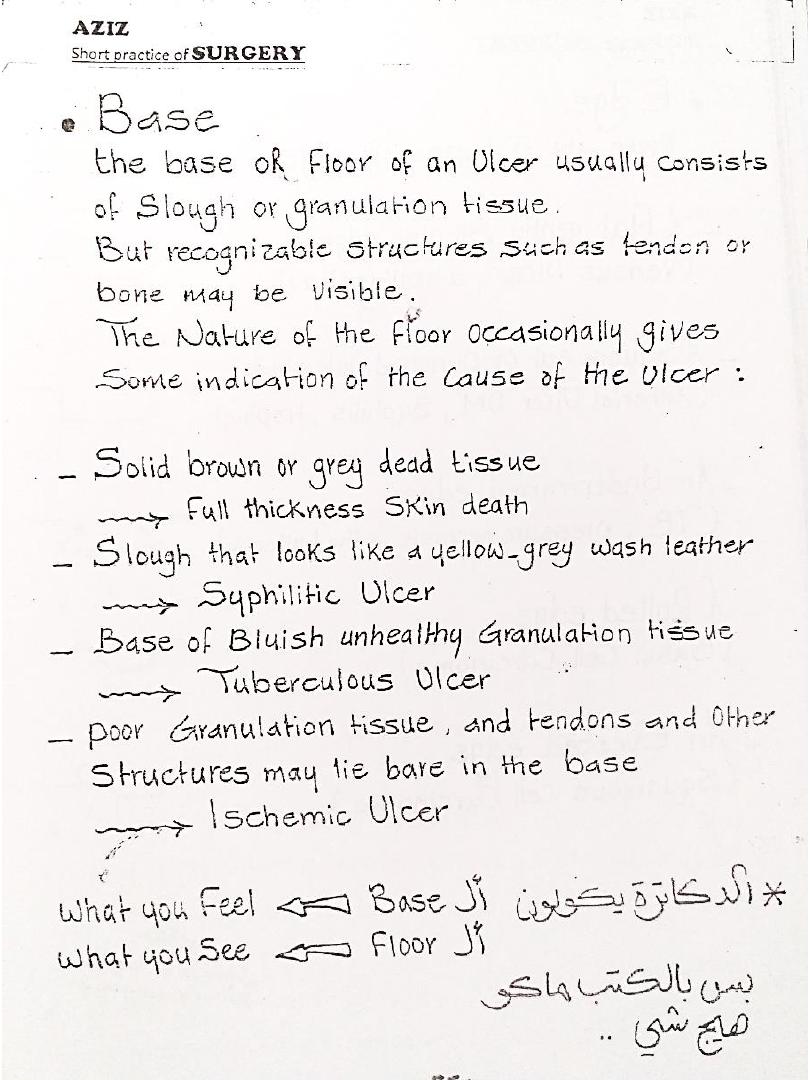 AZIZ
Short practice of SURGERY
• Base
the base oR Floor of an Ulcer usually consists
of Slough or granulation tissue.
But recognizable structures such as tendon or
bone may be visible.
The Nature of the floor occasionally gives
Some indication of the Cause of the Ulcer :
_ Solid brown or grey dead tissue
→ Full thickness Skin death
_ Slough that looks like a yellow-grey wash leather
→ Syphilitic Ulcer
_ Base of Bluish unhealthy Granulation tissue
→ Tuberculous Ulcer
_ poor Granulation tissue, and tendons and Other
Structures may lie bare in the base
→ Ischemic Ulcer
* ألدكاترة يكولون أل Base ⇐ What you Feel
أل Floor ⇐ What you See
بس بالكتب ماكو
هيج شي ..